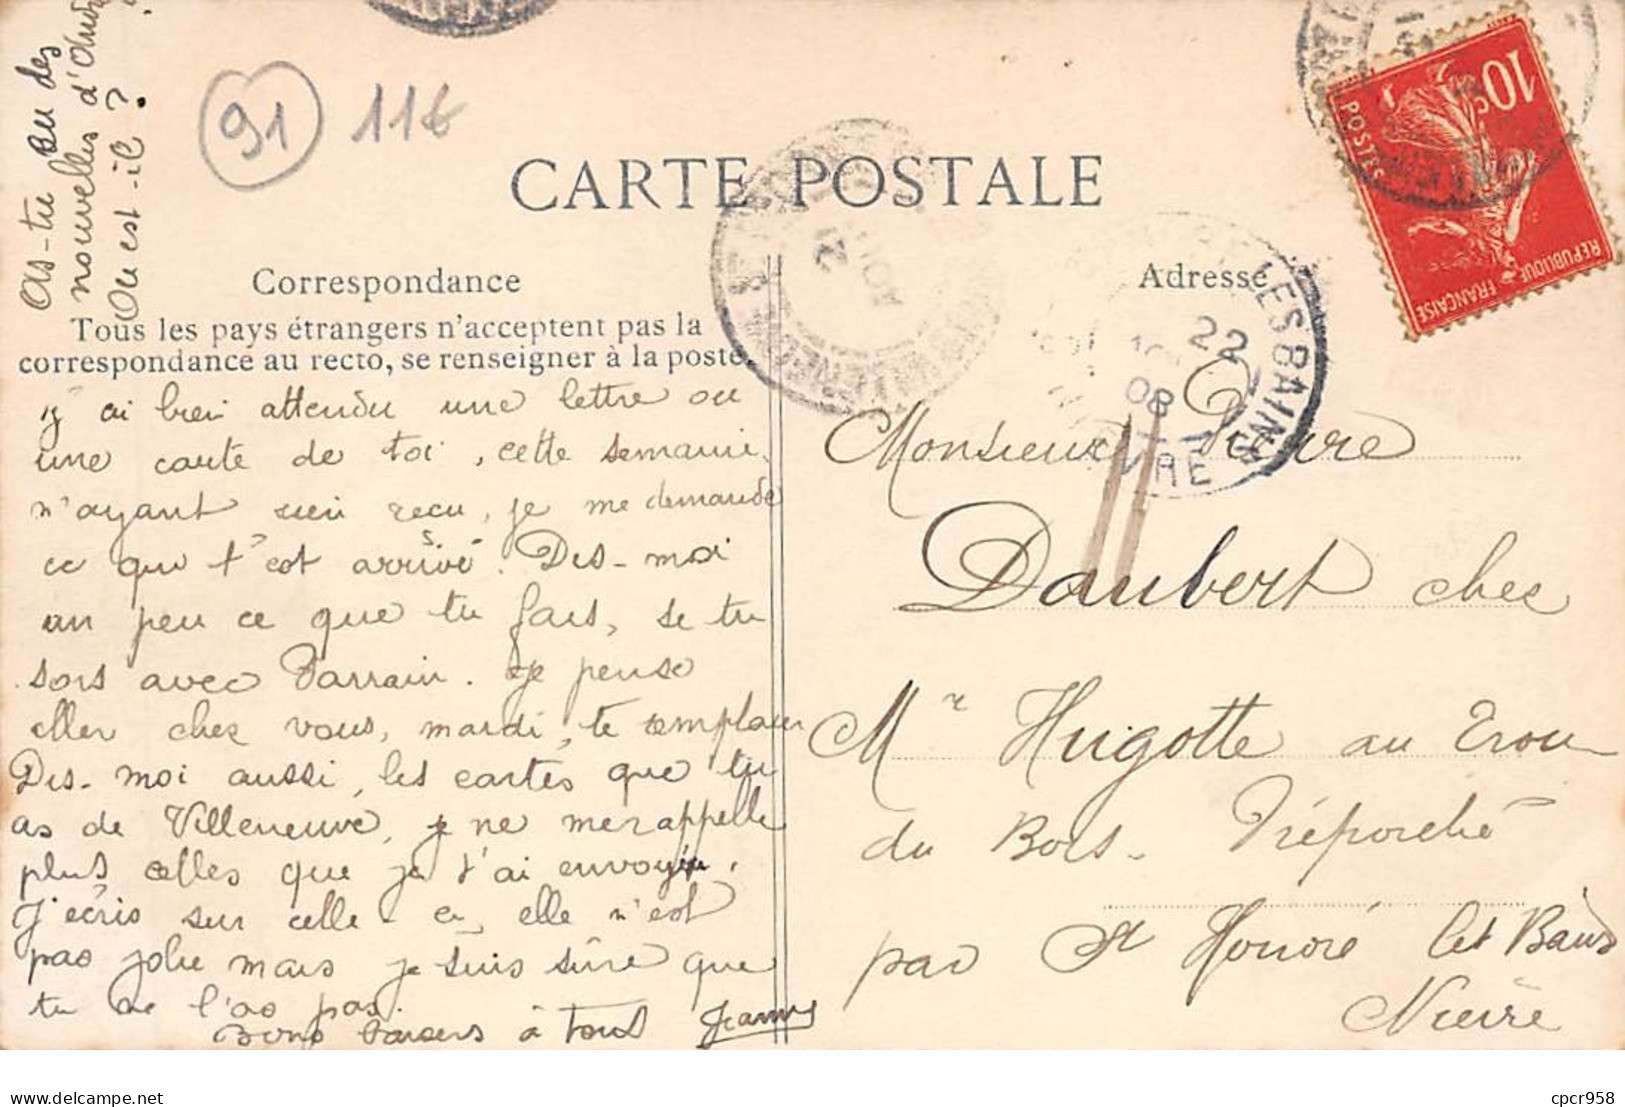 As-tu eu des
nouvelles d'André
Où est-il ?
91
116
CARTE POSTALE
Correspondance
Adresse
Tous les pays étrangers n'acceptent pas la
correspondance au recto, se renseigner à la poste.
10c
POSTES
REPUBLIQUE FRANÇAISE
LES BAINS
22
08
NIEVRE
j'ai bien attendu une lettre ou
une carte de toi, cette semaine,
n'ayant rien reçu, je me demande
ce que t'est arrivé. Dis-moi
un peu ce que tu fais, se tu
sors avec Parrain. Je pense
aller chez vous, mardi, te remplacer
Dis-moi aussi, les cartes que tu
as de Villeneuve, je ne me rappelle
plus celles que je t'ai envoyé.
J'écris sur celle-ci, elle n'est
pas jolie mais je suis sûre que
tu ne l'as pas.
Bons baisers à tous
Monsieur Pierre
Daubert chez
Mr Hugotte au Trou
du Bois - Préporché
par St Honoré les Bains
Nièvre
delcampe.net
cpcr958